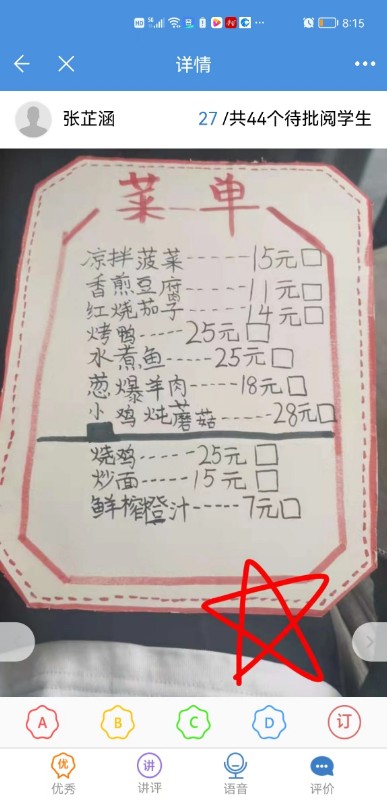 8:15
详情
张芷涵
27 /共44个待批阅学生
菜单
凉拌菠菜------15元□
香煎豆腐------11元□
红烧茄子------14元□
烤鸭-----25元□
水煮鱼-----25元□
葱爆羊肉-----18元□
小鸡炖蘑菇-----28元□
烧鸡-----25元□
炒面-----15元□
鲜榨橙汁-----7元□
A B C D 订
优 讲
优秀 讲评 语音 评价